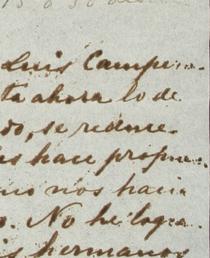 Luis Campe
ta ahora lo de
do, se reduce
is hace propu
mo nos hacia
o. No he logra
is hermanos